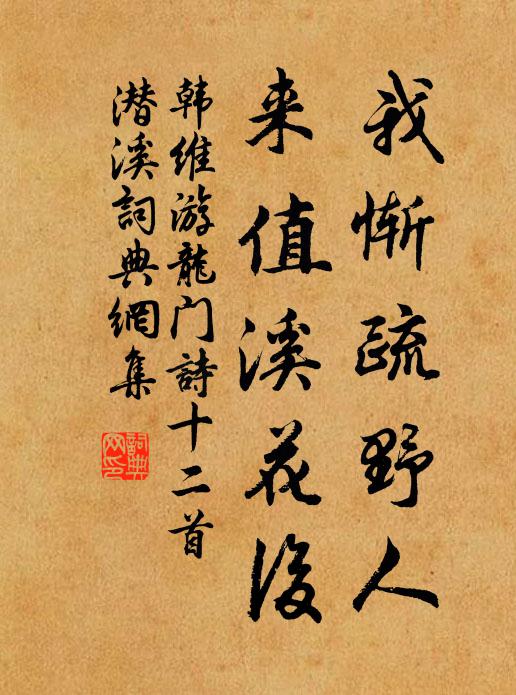 我惭疏野人
来值溪花后
韩维游龍门詩十二首
潜溪詞典網集
詞典網印